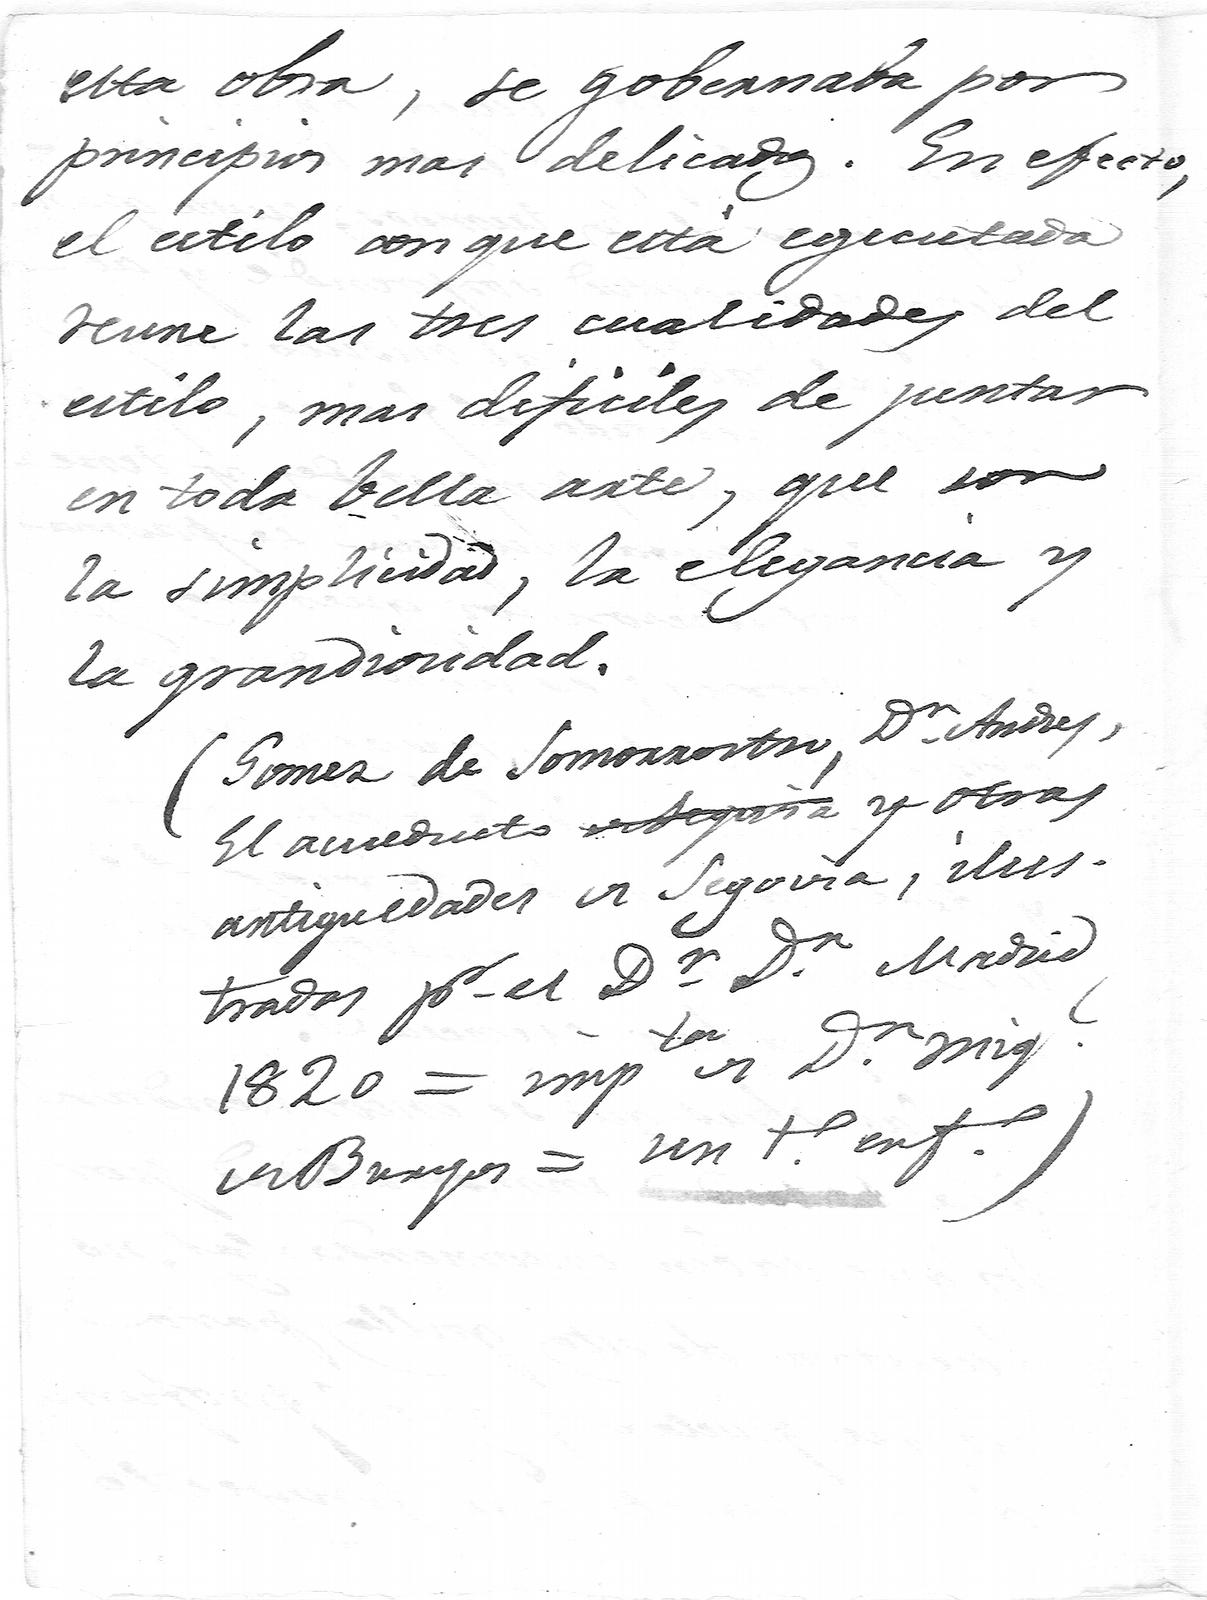 esta obra, se gobernaba por
principios mas delicados. En efecto,
el estilo con que está egecutada
reune las tres cualidades del
estilo, mas dificiles de juntar
en toda bella arte, que son
la simplicidad, la elegancia y
la grandiosidad.
(Gomez de Somorrostro, Dn. Andres,
El acueducto de Segovia y otras
antiguedades de Segovia, ilus-
tradas pr. el Dr. Dn. Madrid
1820 = impta de Dn. Mig.
de Burgos = un t.º en f.º)